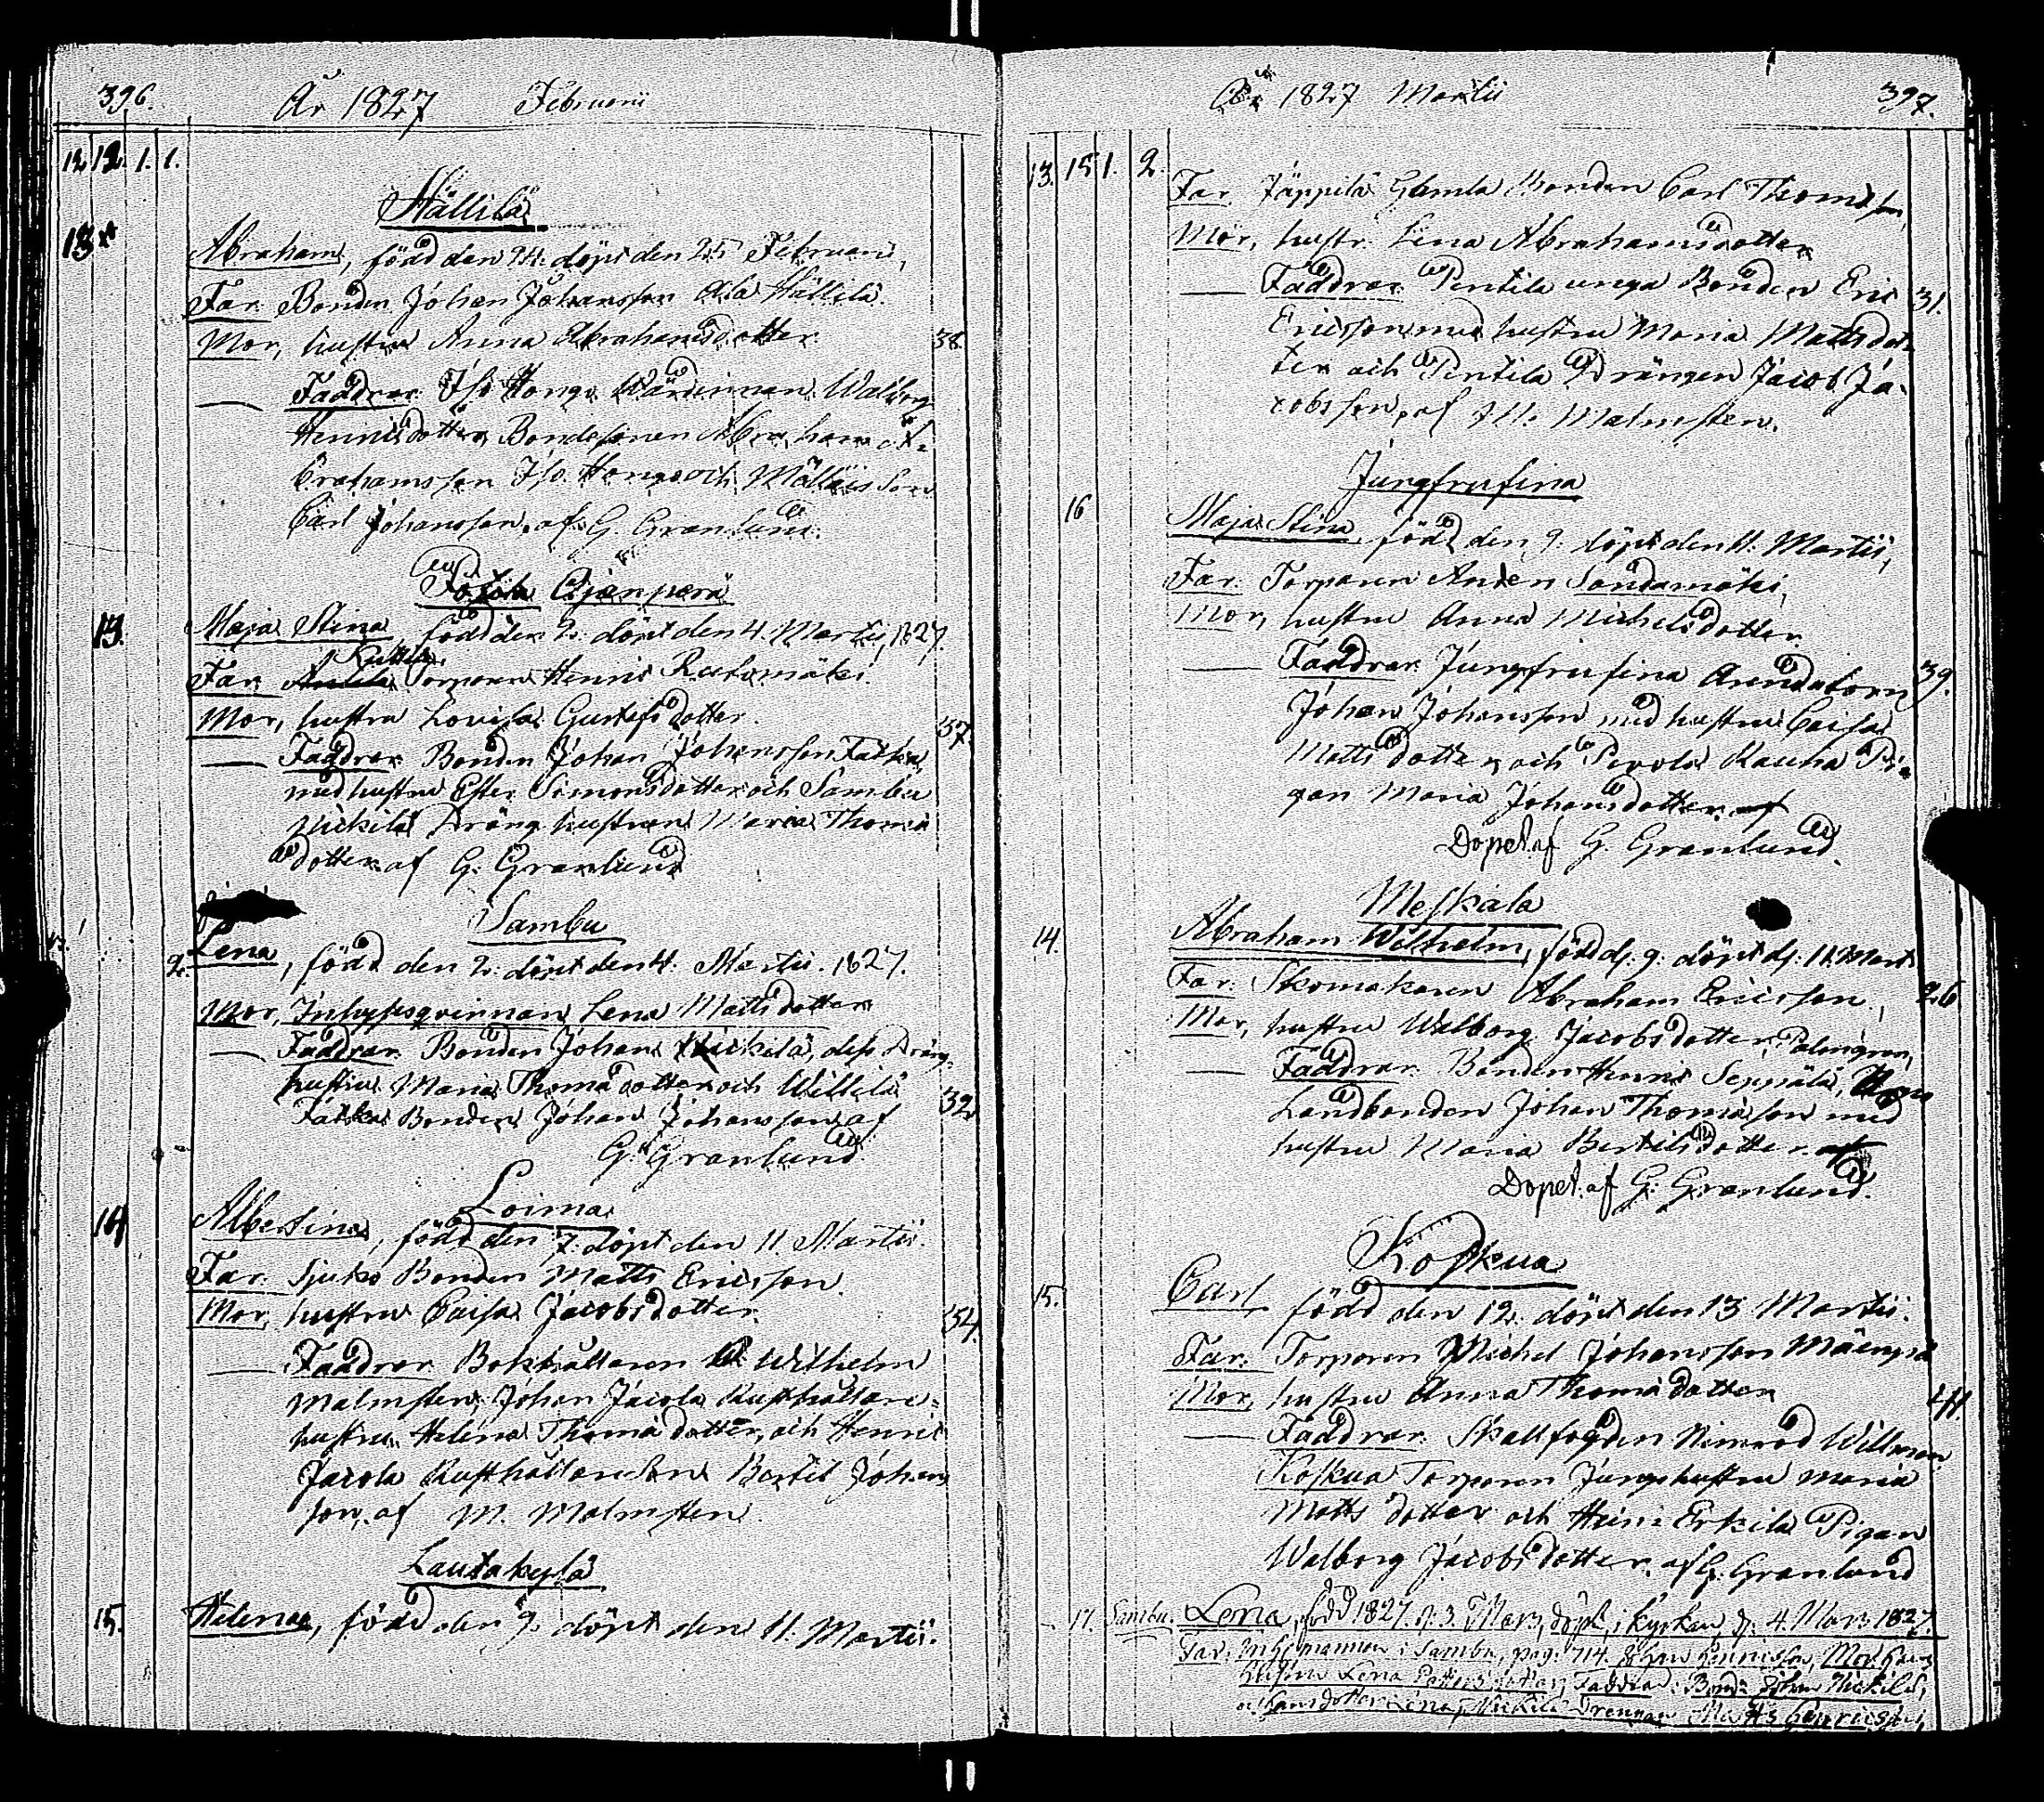 396. År 1827 Februarii
12 12. 1. 1.
Hällilä
13
Abraham, född den 24. döpt den 25 Februarii,
Far Bonden Johan Johansson Ala Hällilä.
Mor, hustru Anna Abrahamsdotter. 38
Faddrar Iso Hongo Wärdinnan Walborg
Henricsdotter, Bondesonen Abraham A=
brahamsson Iso Hongo och
Carl Johansson, af G. Granlund.
Ojanperä
13. Maja Stina, född den 2. döpt den 4. Martii, 1827.
Far Torparen Henric
Mor, hustru Lovisa Gustafsdotter. 37.
Faddrar Bonden Johan Johansson
med hustru Ester Simonsdotter och Sambu
Mickilä Dräng hustrun Maria Thomæ
dotter af G. Granlund
Sambu
2. Lena, född den 2. döpt den 4. Martii. 1827.
Mor, Inhysesqvinnan Lena Mattsdotter
Faddrar Bonden Johan Mickilä, dess Dräng
hustru Maria Thomædotter och Willilä
Bonden Johan Johansson af 32
G. Granlund
Loima
14 Albertina, född den 7. döpt den 11 Martii
Far Sjuko Bonden Matts Ericsson.
Mor, hustru Caisa Jacobsdotter. 34.
Faddrar Bokhållaren Wilhelm
Malmsten, Johan Jacola Rusthållare=
hustru Helena Thomædotter, och Henric
Jacola Rusthållareson Bertil Johans
son, af M. Malmsten
Lautakylä
15. Helena, född den 9. döpt den 11. Martii.
År 1827 Martii 397.
13. 15 1. 2.
Far Jäppilä Gamla Bonden Carl Thomasson,
Mor, hustr. Lena Abrahamsdotter
Faddrar Pentila unga Bonden Eric 31.
Ericsson med hustru Maria Mattsdot=
ter och Pentila Drängen Jacob Ja=
cobsson, af M. Malmsten.
Jungfrufina
16 Maja Stina född den 9. döpt den 11. Martii,
Far Torparen Anders
Mor, hustru Anna Michelsdotter
Faddrar Jungfrufina Arendatorn 39.
Johan Johansson med hustru Caisa
Mattsdotter, och Pervola Rauha Pi=
gan Maria Johansdotter af
Döpet af G. Granlund.
Meskala
14. Abraham Wilhelm, född d. 9. döpt d. 11. Mart
Far Skomakaren Abraham Ericsson, 26
Mor, hustru Walborg Jacobsdotter Palmgren,
Faddrar Bonden Henric Seppälä,
Landbonden Johan Thomasson med
hustru Maria Bertilsdotter af
Döpet af G. Granlund.
Koskua
15. Carl född den 12. döpt den 13 Martii.
Far Torparen Michel Johansson Mäenpä
Mor, hustru Anna Thomædotter 41.
Faddrar Skallfogden Nimrod Willman
Koskua Torparen Jungs hustru Maria
Matts dotter och Heini Erkilä Pigan
Walborg Jacobsdotter, af G. Granlund
17. Sambu. Lena, född 1827. d. 3. Mars, döpt i kyrkan, d. 4. Mars 1827.
Far, Sambu, pag. 714. Henricsson, Mor, hans
hustru Lena, Faddrar: Bond: Johan Mickilä,
Lena, Mickilä Drennan Matts Henricsson,